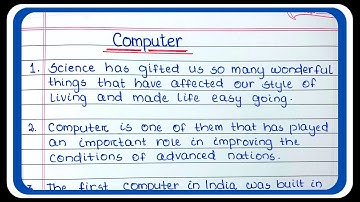 Computer
1. Science has gifted us so many wonderful
things that have affected our style of
living and made life easy going.
2. Computer is one of them that has played
an important role in improving the
conditions of advanced nations.
3. The first computer in India was built in